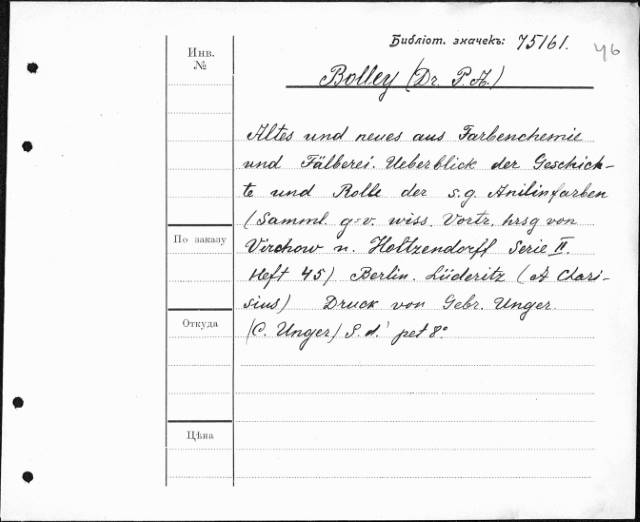 Библіот. значекъ: 75161.
46
Инв. №
Bolley (Dr. P. A.)
Altes und neues aus Farbenchemie
und Fälberei. Ueberblick der Geschich-
te und Rolle der s.g. Anilinfarben
(Samml. g-v. wiss. Vortr. hrsg von
По заказу
Virchow n. Holtzendorff Serie II.
Heft 45) Berlin. Lüderitz (A Clari-
sius) Druck von Gebr. Unger.
Откуда
(C. Unger) S. d. pet 8°
Цѣна